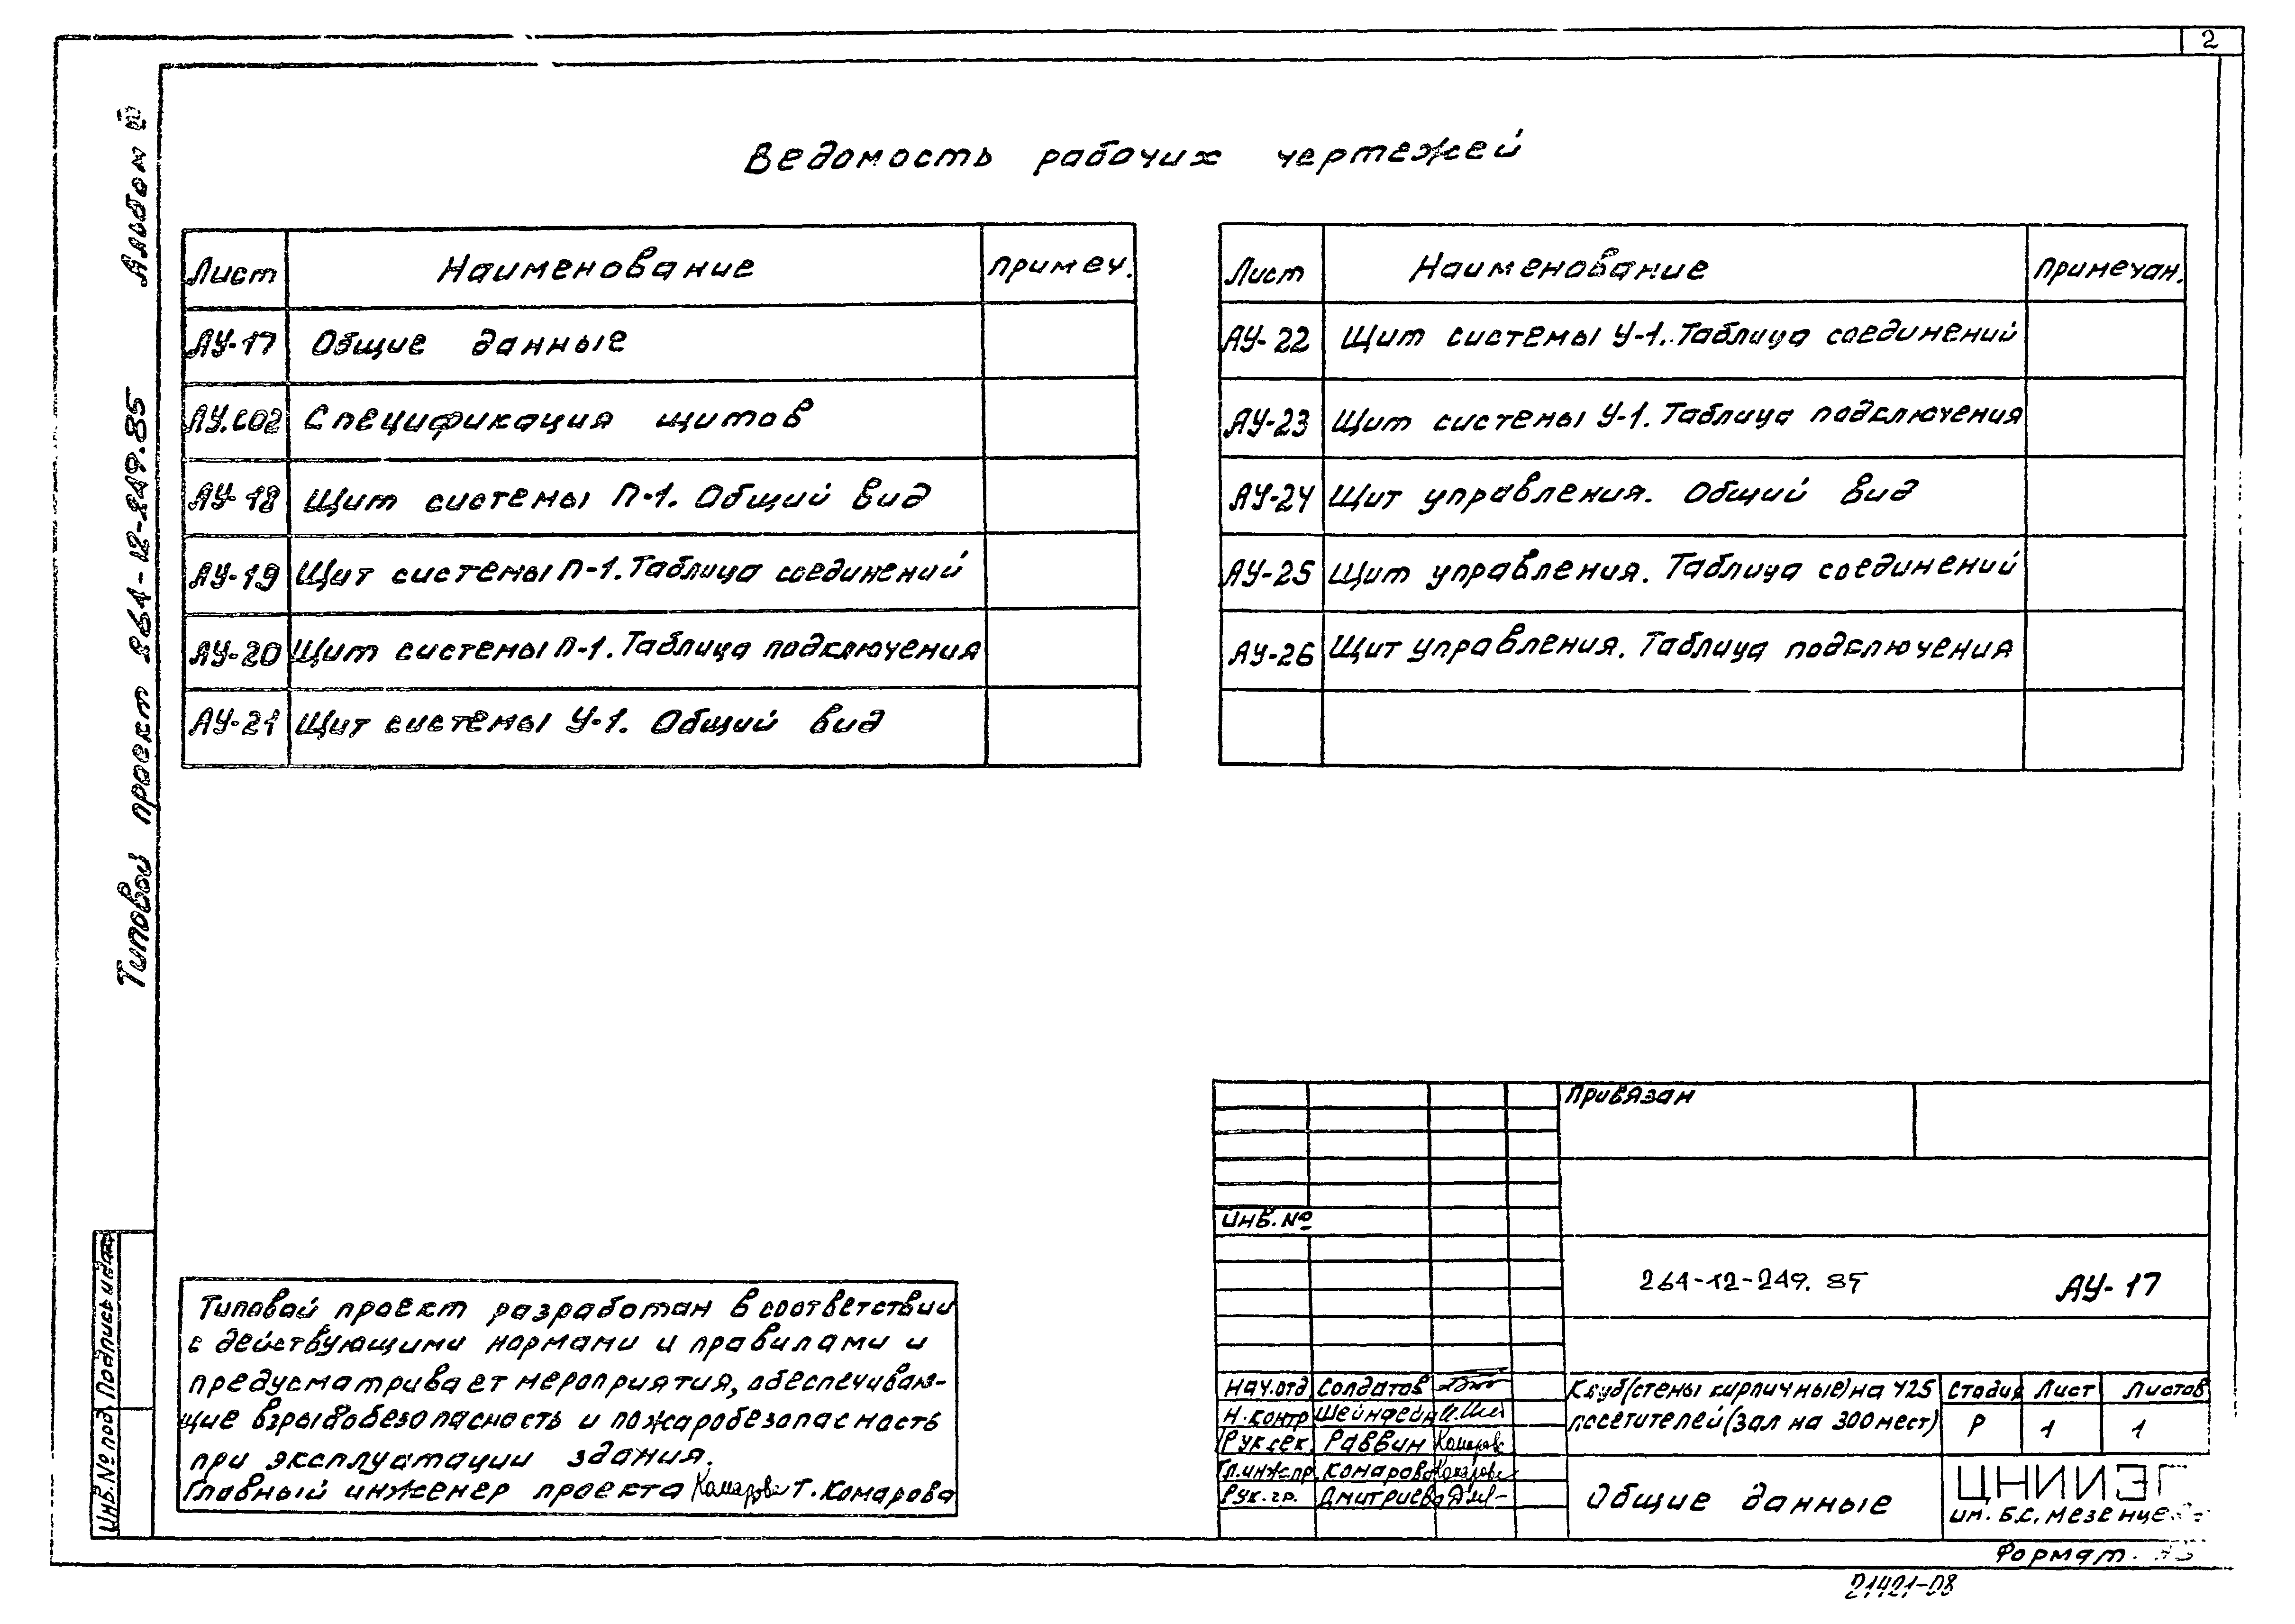 2
Альбом
Типовой проект 264-12-249.85
Ведомость рабочих чертежей
Лист Наименование примеч.
АУ-17 Общие данные
АУ.С02 Спецификация щитов
АУ-18 Щит системы П-1. Общий вид
АУ-19 Щит системы П-1. Таблица соединений
АУ-20 Щит системы П-1. Таблица подключения
АУ-21 Щит системы У-1. Общий вид
Лист Наименование Примечан.
АУ-22 Щит системы У-1. Таблица соединений
АУ-23 Щит системы У-1. Таблица подключения
АУ-24 Щит управления. Общий вид
АУ-25 Щит управления. Таблица соединений
АУ-26 Щит управления. Таблица подключения
Типовой проект разработан в соответствии
с действующими нормами и правилами и
предусматривает мероприятия, обеспечиваю-
щие взрывобезопасность и пожаробезопасность
при эксплуатации здания.
Главный инженер проекта Комарова Т. Комарова
Инв.№ под Подпись и дата
Привязан
Инв. №
264-12-249.85 АУ-17
Нач.отд Солдатов
Н.контр Шейнфейн
Рук.сек. Раввин Комарова
Гл.инж.пр. Комарова Комарова
Рук.гр. Дмитриева
Клуб (стены кирпичные) на 425
посетителей (зал на 300 мест)
Стадия Лист Листов
Р 1 1
Общие данные
ЦНИИЭП
им. Б.С. Мезенцева
Формат. А3
21421-08